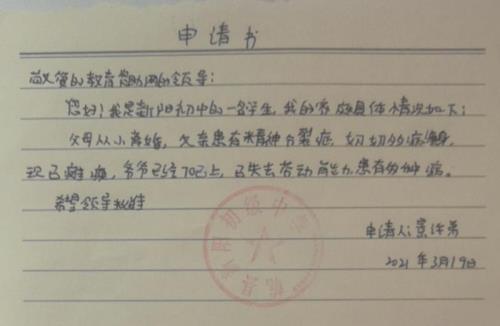 申请书
敬爱的教育资助的领导:
您好!我是新阳初中的一名学生,我的家庭具体情况如下:
父母从小离婚,父亲患有精神分裂症,奶奶多病缠身,
现已瘫痪,爷爷已经70已上,已失去劳动能力,患有多种病。
希望领导批准
申请人:
2021年3月19日
初级中学